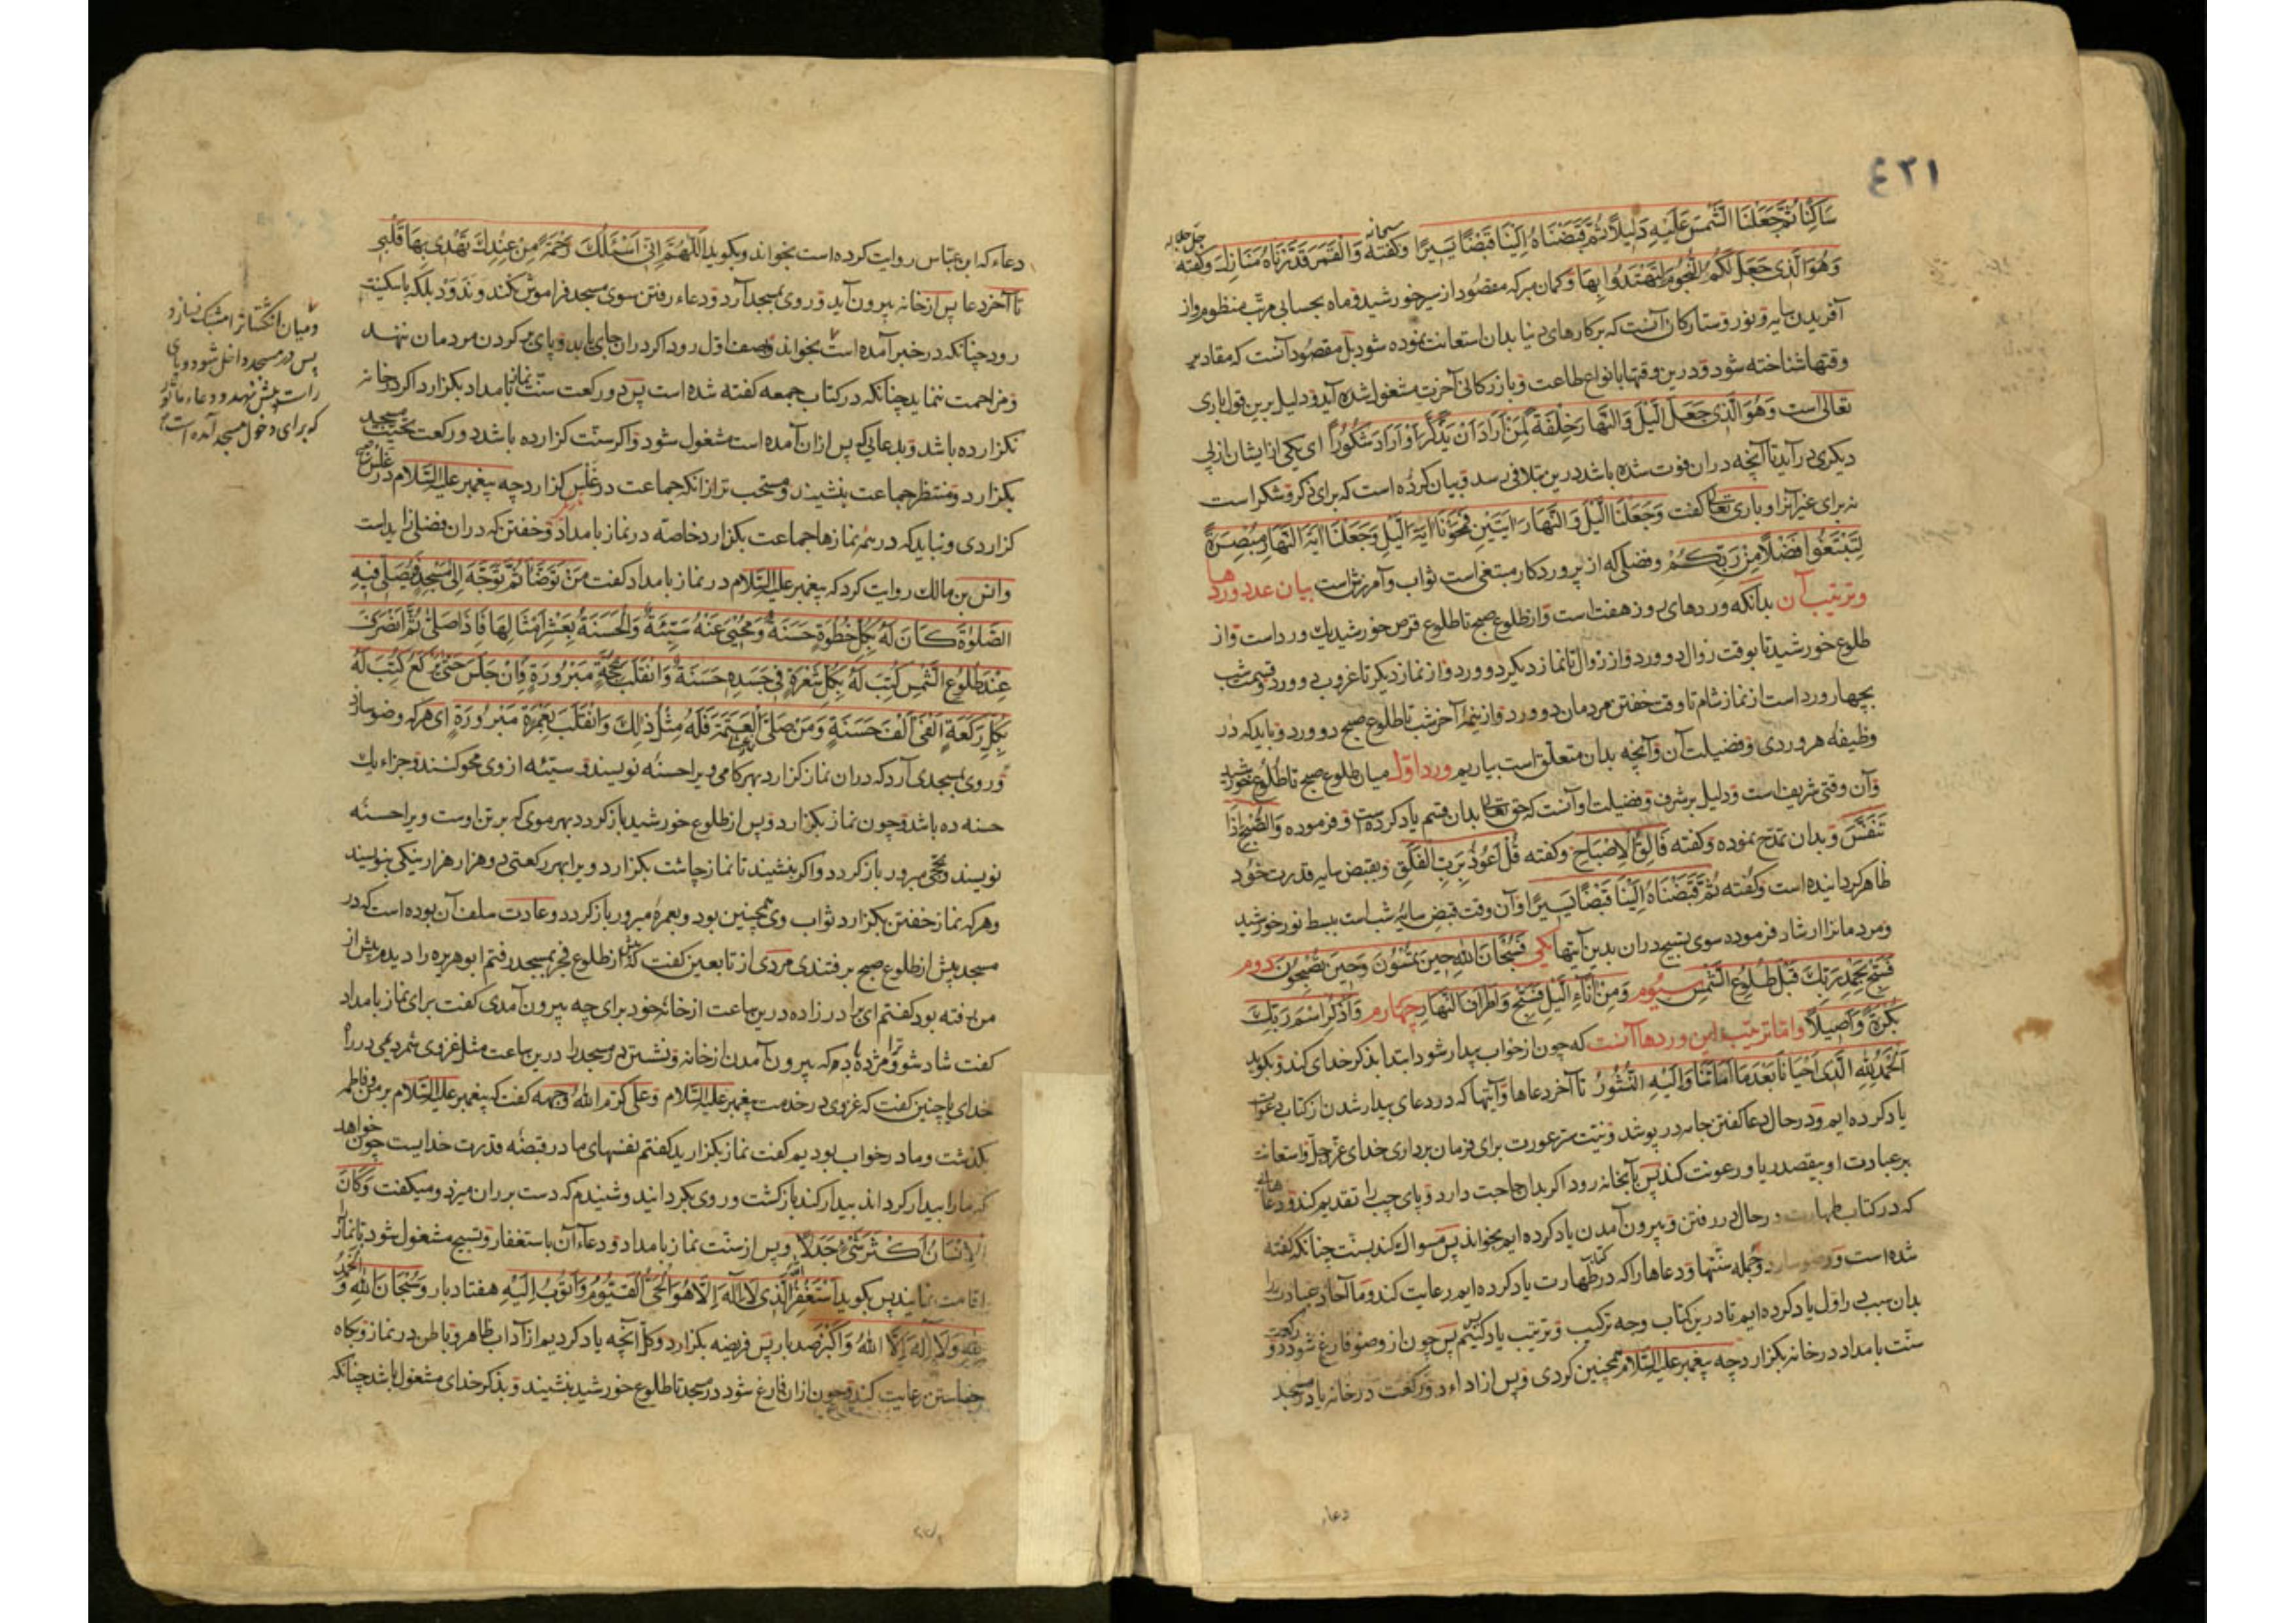 ٤٣١
سَاكِنًا ثُمَّ جَعَلْنَا الشَّمْسَ عَلَيْهِ دَلِيلًا ثُمَّ قَبَضْنَاهُ اِلَيْنَا قَبْضًا يَسِيرًا وكفته سبحانه وَالْقَمَرَ قَدَّرْنَاهُ مَنَازِلَ وكفته جل جلاله
وَهُوَ الَّذِى جَعَلَ لَكُمُ النُّجُومَ لِتَهْتَدُوا بِهَا وكمان مبر كه مقصود از سير خورشيد و ماه بحسابى مرتب منظوم و از
آفريدن سايه و نور و ستاركان آنست كه بر كارهاى دنيا بدان استعانت نموده شود بل مقصود آنست كه مقادير
وقتها شناخته شود و درين وقتها بانواع طاعت و بازركانى آخرت مشغول شده آيد و دليل برين قول بارى
تعالى است وَهُوَ الَّذِى جَعَلَ الَّيْلَ وَالنَّهَارَ خِلْفَةً لِمَنْ اَرَادَ اَنْ يَذَّكَّرَ اَوْ اَرَادَ شُكُورًا اى يكى از ايشان از پى
ديكرى در آيد تا آنچه در ان فوت شده باشد درين متلافى رسد و بيان كرده است كه براى ذكر و شكر است
نه براى غير آن و بارى تعالى كفت وَجَعَلْنَا الَّيْلَ وَالنَّهَارَ اٰيَتَيْنِ فَمَحَوْنَا اٰيَةَ الَّيْلِ وَجَعَلْنَا اٰيَةَ النَّهَارِ مُبْصِرَةً
لِتَبْتَغُوا فَضْلًا مِنْ رَبِّكُمْ و فضلى كه از پروردكار مبتغى است ثواب و آمرزش است بيان عدد وردها
و ترتيب آن بدانكه وردهاى روز هفت است و از طلوع صبح تا طلوع قرص خورشيد يك ورد است و از
طلوع خورشيد تا بوقت زوال دو ورد و از زوال تا نماز ديكر دو ورد و از نماز ديكر تا غروب دو ورد و قسمت شب
بچهار ورد است از نماز شام تا وقت خفتن مردمان دو ورد و از نيمهٔ آخر شب تا طلوع صبح دو ورد و بايد كه در
وظيفهٔ هر وردى و فضيلت آن و آنچه بدان متعلق است بياريم ورد اول ميان طلوع صبح تا طلوع خورشيد
و آن وقتى شريف است و دليل بر شرف و فضيلت او آنست كه حق تعالى بدان قسم ياد كرده است و فرموده وَالصُّبْحِ اِذَا
تَنَفَّسَ و بدان تمدح نموده و كفته فَالِقُ الْاِصْبَاحِ و كفته قُلْ اَعُوذُ بِرَبِّ الْفَلَقِ و بقبض سايه قدرت خود
ظاهر كردانيده است و كفته ثُمَّ قَبَضْنَاهُ اِلَيْنَا قَبْضًا يَسِيرًا و آن وقت قبض سايهٔ شب است ببسط نور خورشيد
و مردمانرا ارشاد فرموده سوى تسبيح در ان بدين آيتها يكى فَسُبْحَانَ اللهِ حِينَ تُمْسُونَ وَحِينَ تُصْبِحُونَ دوم
فَسَبِّحْ بِحَمْدِ رَبِّكَ قَبْلَ طُلُوعِ الشَّمْسِ سيوم وَمِنْ اٰنَاءِ الَّيْلِ فَسَبِّحْ وَاَطْرَافَ النَّهَارِ چهارم وَاذْكُرِ اسْمَ رَبِّكَ
بُكْرَةً وَاَصِيلًا و اما ترتيب اين وردها آنست كه چون از خواب بيدار شود ابتدا بذكر خداى كند و بكويد
اَلْحَمْدُ لِلّٰهِ الَّذِى اَحْيَانَا بَعْدَمَا اَمَاتَنَا وَاِلَيْهِ النُّشُورُ تا آخر دعاها و آيتها كه در دعاى بيدار شدن از كتاب دعوات
ياد كرده ايم و در حال دعا كفتن جامه در پوشد و نيت ستر عورت براى فرمان بردارى خداى عز و جل و استعانت
بر عبادت او بيقصد ريا و رعونت كند پس بآبخانه رود اكر بدان حاجت دارد و پاى چپ را تقديم كند و دعاهائى
كه در كتاب طهارت در حال در رفتن و بيرون آمدن ياد كرده ايم بخواند پس مسواك كند بسنت چنانكه كفته
شده است و وضو سازد و جمله سنتها و دعاها را كه در كتاب طهارت ياد كرده ايم رعايت كند و ما آحاد عبادت را
بدان سبب براول ياد كرده ايم تا درين كتاب وجه تركيب و ترتيب ياد كنيم پس چون از وضو فارغ شود دو ركعت
سنت بامداد در خانه بكزارد چه پيغمبر عليه السلام همچنين كردى و پس از اداء دو ركعت در خانه يا در مسجد
دعاء
دعاء كه ابن عباس روايت كرده است بخواند و بكويد اَللّٰهُمَّ اِنِّى اَسْئَلُكَ رَحْمَةً مِنْ عِنْدِكَ تَهْدِى بِهَا قَلْبِى
تا آخر دعا پس از خانه بيرون آيد و روى بمسجد آرد و دعاء رفتن سوى مسجد فراموش نكند و ندود بلكه با سكينه
رود چنانكه در خبر آمده است بخواند و بصف اول رود اكر در ان جاى يابد و پاى بر كردن مردمان ننهد
و مزاحمت ننمايد چنانكه در كتاب جمعه كفته شده است پس دو ركعت سنت نماز بامداد بكزارد اكر در خانه
نكزارده باشد و بدعايى كه پس از ان آمده است مشغول شود و اكر سنت كزارده باشد دو ركعت تحيت مسجد
بكزارد و منتظر جماعت بنشيند و مستحب تر از انكه جماعت در غلس كزارد چه پيغمبر عليه السلام در غلس
كزاردى و نبايد كه در همه نمازها جماعت بكزارد خاصه در نماز بامداد و خفتن كه در ان فضلى زايد است
و انس بن مالك روايت كرد كه پيغمبر عليه السلام در نماز بامداد كفت مَنْ تَوَضَّأَ ثُمَّ تَوَجَّهَ اِلَى مَسْجِدٍ يُصَلِّى فِيهِ
الصَّلٰوةَ كَانَ لَهُ بِكُلِّ خُطْوَةٍ حَسَنَةٌ وَمُحِىَ عَنْهُ سَيِّئَةٌ وَالْحَسَنَةُ بِعَشْرِ اَمْثَالِهَا فَاِذَا صَلَّى ثُمَّ انْصَرَفَ
عِنْدَ طُلُوعِ الشَّمْسِ كُتِبَ لَهُ بِكُلِّ شَعْرَةٍ فِى جَسَدِهِ حَسَنَةٌ وَانْقَلَبَ بِحَجَّةٍ مَبْرُورَةٍ فَاِنْ جَلَسَ حَتَّى يَرْكَعَ كُتِبَ لَهُ
بِكُلِّ رَكْعَةٍ اَلْفَىْ اَلْفِ حَسَنَةٍ وَمَنْ صَلَّى الْعَتَمَةَ فَلَهُ مِثْلُ ذٰلِكَ وَانْقَلَبَ بِعُمْرَةٍ مَبْرُورَةٍ اى هر كه وضو سازد
و روى بمسجدى آرد كه در ان نماز كزارد بهر كامى ويرا حسنه نويسند و سيئه از وى محو كنند و جزاء يك
حسنه ده باشد و چون نماز بكزارد و پس از طلوع خورشيد باز كردد بهر موى كه بر تن اوست ويرا حسنه
نويسند و بحجى مبرور باز كردد و اكر بنشيند تا نماز چاشت بكزارد ويرا بهر ركعتى دو هزار هزار نيكى بنويسند
و هر كه نماز خفتن بكزارد ثواب وى همچنين بود و بعمرهٔ مبرور باز كردد و عادت سلف آن بوده است كه در
مسجد پيش از طلوع صبح برفتندى مردى از تابعين كفت كه پيش از طلوع فجر بمسجد رفتم ابو هريره را ديدم پيش از
من رفته بود كفتم اى برادر زاده درين ساعت از خانهٔ خود براى چه بيرون آمدى كفت براى نماز بامداد
كفت شاد شو و مژده ترا بدم كه بيرون آمدن از خانه و نشستن در مسجد را درين ساعت مثل غزوى شمرديمى در راه
خداى يا چنين كفت كه غزوى در خدمت پيغمبر عليه السلام و على كرم الله وجهه كفت كه پيغمبر عليه السلام بر من و فاطمه
بكذشت و ما در خواب بوديم كفت نماز بكزاريد كفتم نفسهاى ما در قبضهٔ قدرت خدايست چون خواهد
كه ما را بيدار كرداند بيدار كند باز كشت و روى بكردانيد و شنيدم كه دست بر ران ميزد و ميكفت وَكَانَ
الْاِنْسَانُ اَكْثَرَ شَىْءٍ جَدَلًا و پس از سنت نماز بامداد و دعاء آن باستغفار و تسبيح مشغول شود تا نماز را
اقامت نمايند پس بكويد اَسْتَغْفِرُ اللهَ الَّذِى لَا اِلٰهَ اِلَّا هُوَ الْحَىُّ الْقَيُّومُ وَاَتُوبُ اِلَيْهِ هفتاد بار و سُبْحَانَ اللهِ وَالْحَمْدُ
لِلّٰهِ وَلَا اِلٰهَ اِلَّا اللهُ وَاللهُ اَكْبَرُ صد بار پس فريضه بكزارد و كل آنچه ياد كرديم از آداب ظاهر و باطن در نماز و بكاه
رعايت كند و چون از ان فارغ شود در مسجد تا طلوع خورشيد بنشيند و بذكر خداى مشغول باشد چنانكه
و ميان انكشتانرا مشبك نسازد
پس در مسجد داخل شود و پاى
راست پيش نهد و دعاء ماثور
كه براى دخول مسجد آمده است